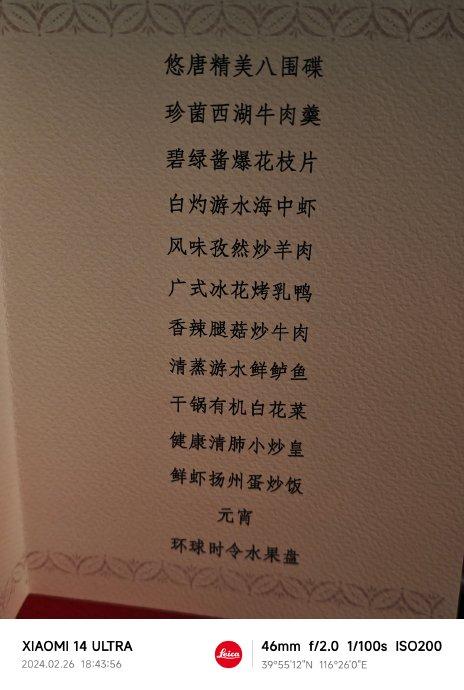 悠唐精美八围碟
珍菌西湖牛肉羹
碧绿酱爆花枝片
白灼游水海中虾
风味孜然炒羊肉
广式冰花烤乳鸭
香辣腿菇炒牛肉
清蒸游水鲜鲈鱼
干锅有机白花菜
健康清肺小炒皇
鲜虾扬州蛋炒饭
元宵
环球时令水果盘
XIAOMI 14 ULTRA
2024.02.26 18:43:56
Leica
46mm f/2.0 1/100s ISO200
39°55'12"N 116°26'0"E